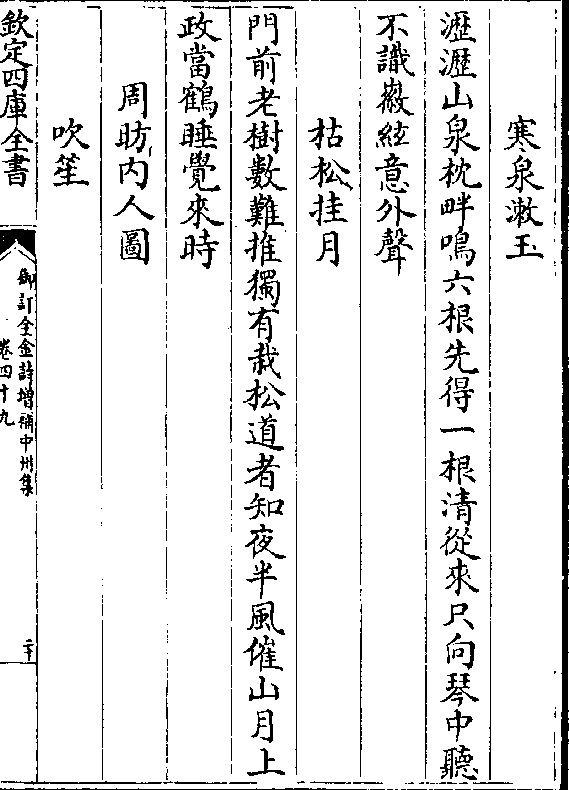 寒泉漱玉
瀝瀝山泉枕畔鳴六根先得一根清從來只向琴中聽
不識徽絃意外聲
枯松挂月
門前老樹數難推獨有栽松道者知夜半風催山月上
政當鶴睡覺來時
周昉内人圖
吹笙
欽定四庫全書
御訂全金詩增補中州集
卷四十九
二十